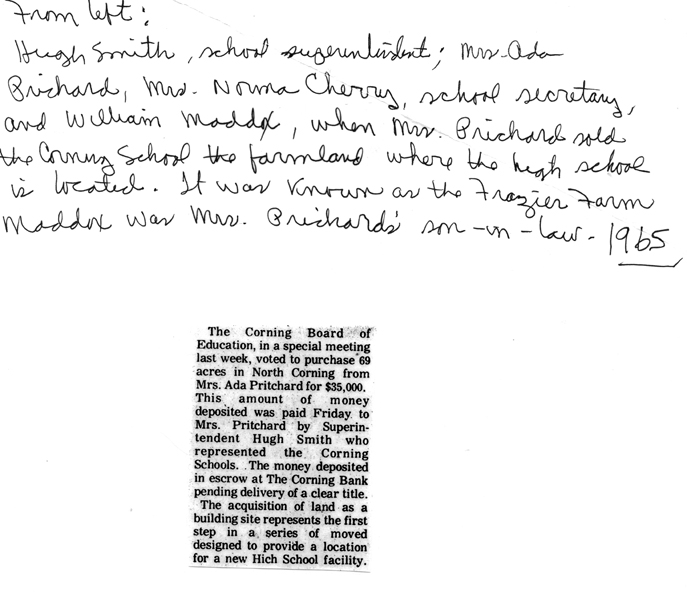 From left:
Hugh Smith, school superintendent; Mrs. Ada
Prichard, Mrs. Norma Cherry, school secretary,
and William Maddox, when Mrs. Prichard sold
the Corning School the farmland where the high school
is located. It was known as the Frazier Farm
Maddox was Mrs. Prichard's son-in-law. 1965
The Corning Board of
Education, in a special meeting
last week, voted to purchase 69
acres in North Corning from
Mrs. Ada Pritchard for $35,000.
This amount of money
deposited was paid Friday to
Mrs. Pritchard by Superin-
tendent Hugh Smith who
represented the Corning
Schools. The money deposited
in escrow at The Corning Bank
pending delivery of a clear title.
The acquisition of land as a
building site represents the first
step in a series of moved
designed to provide a location
for a new Hich School facility.